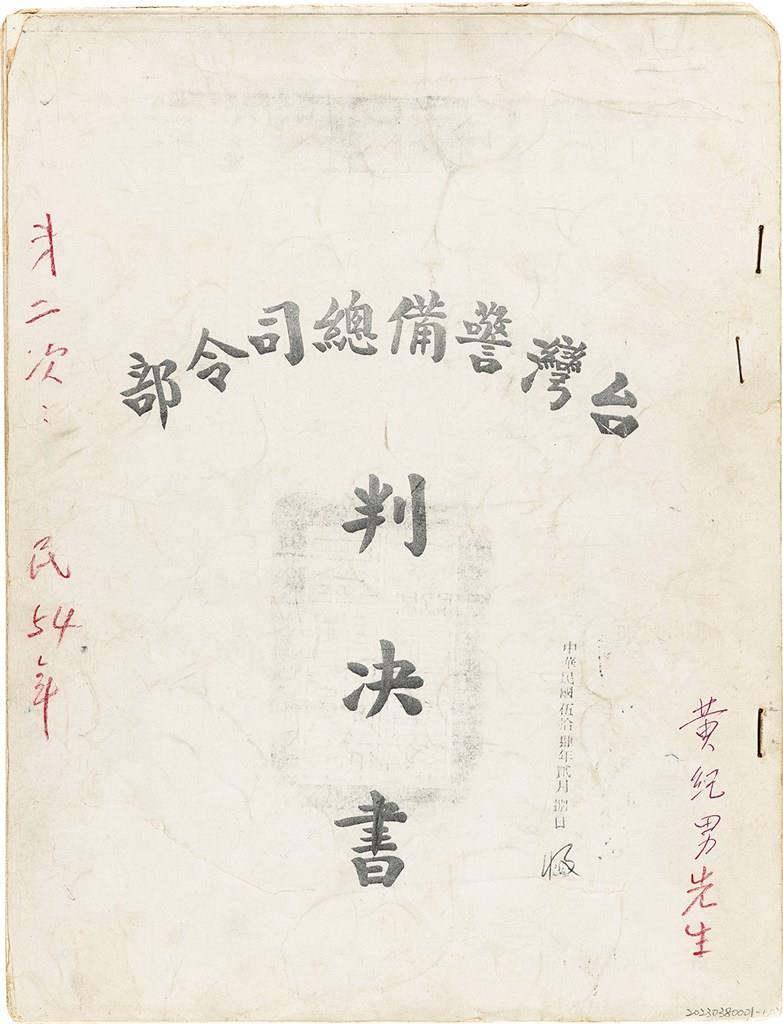 台灣警備總司令部
判決書
中華民國伍拾肆年貳月 日
收
黃紀男先生
第二次：
民54年
20230380001-